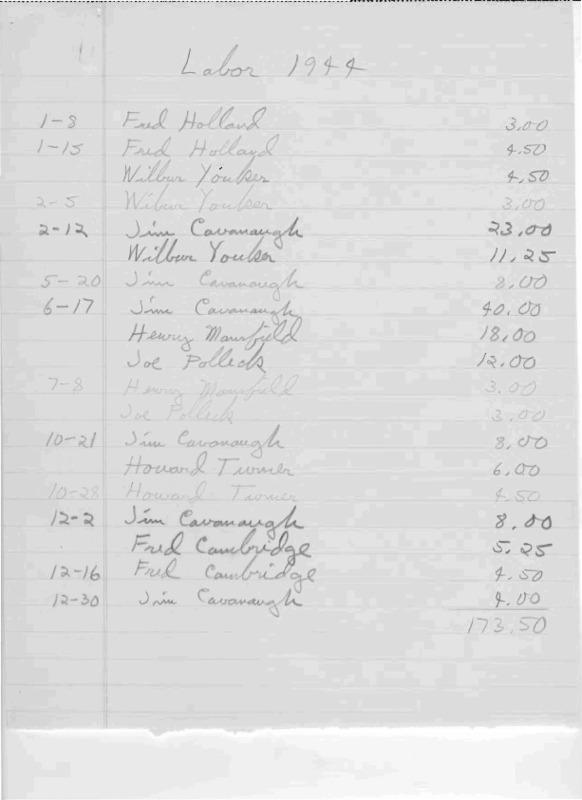 Labor 1944
1-8 Fred Holland 3.00
1-15 Fred Holland 4.50
Wilbur Younker 4.50
2-5 Wilbur Younker 3.00
2-12 Jim Cavanaugh 23.00
Wilbur Younker 11.25
5-20 Jim Cavanaugh 8.00
6-17 Jim Cavanaugh 40.00
Henry Mansfield 18.00
Joe Polleck 12.00
7-8 Henry Mansfield 3.00
Joe Polleck 3.00
10-21 Jim Cavanaugh 8.00
Howard Turner 6.00
10-28 Howard Turner 4.50
12-2 Jim Cavanaugh 8.00
Fred Cambridge 5.25
12-16 Fred Cambridge 4.50
12-30 Jim Cavanaugh 4.00
173.50